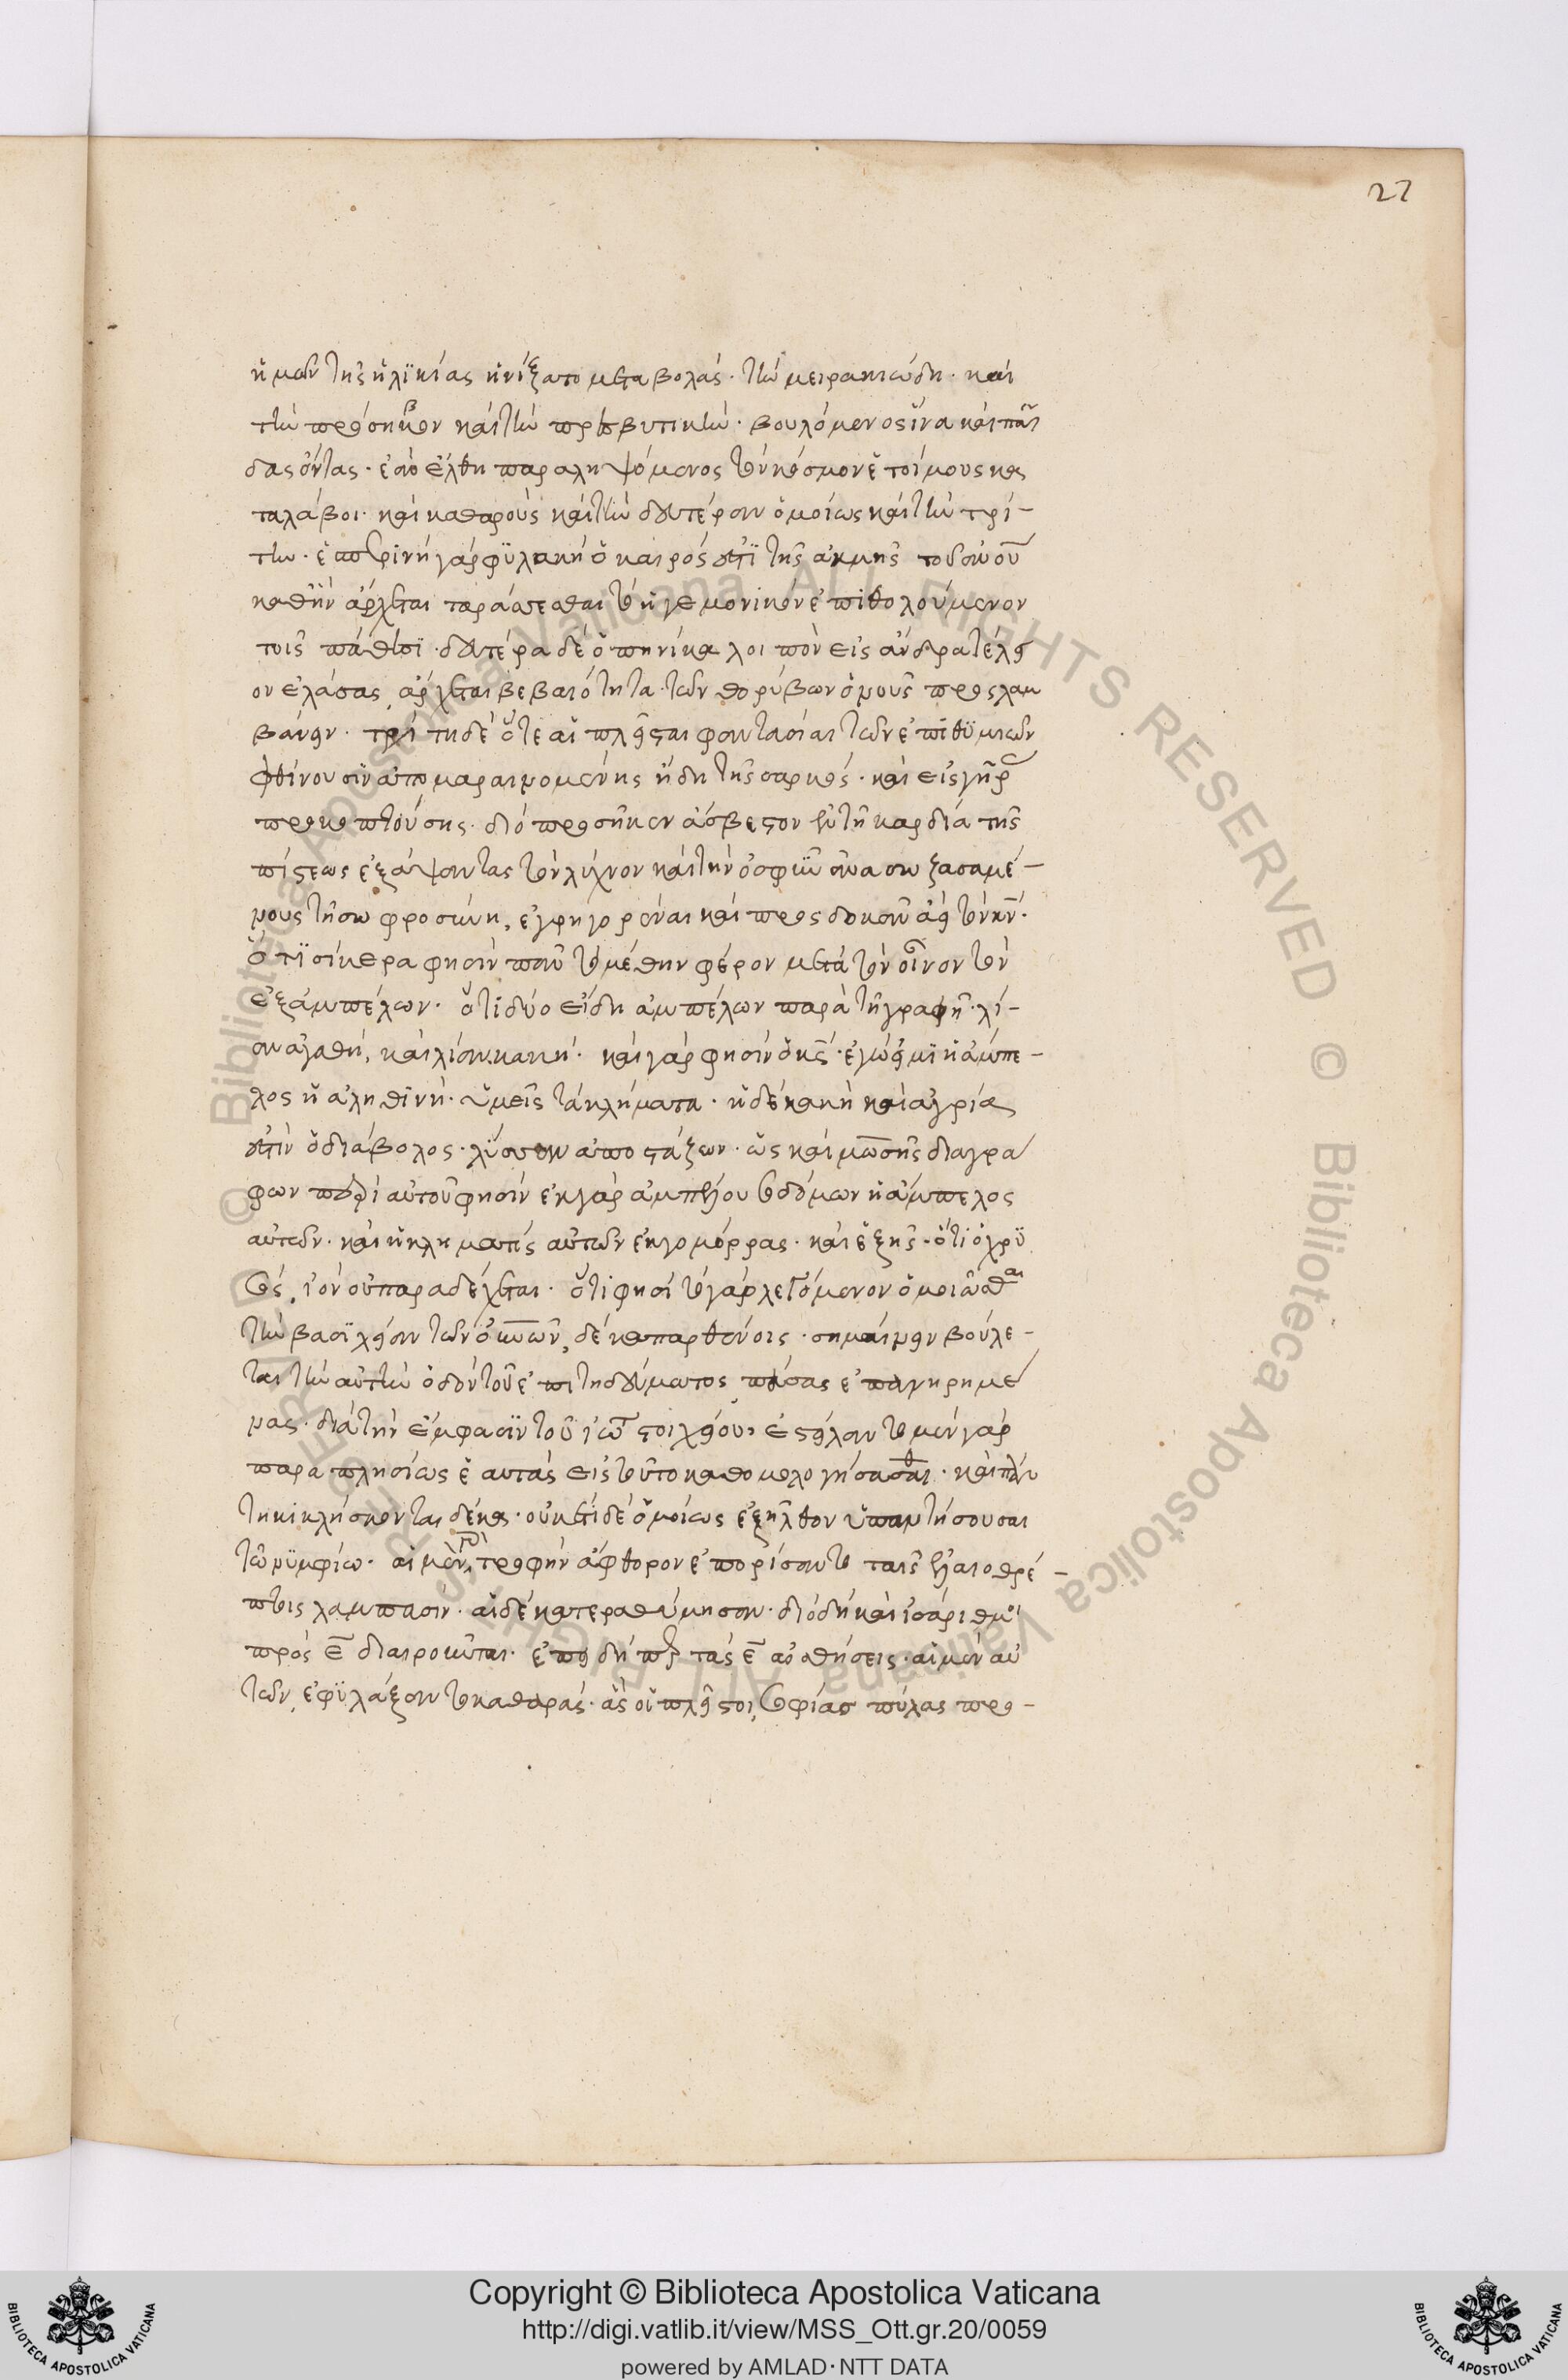 27
ἡμῶν τῆς ἡλϊκίας ἠνίξατο μεταβολάς· τὴν μειρακιώδη· καὶ
τὴν προσηκον καὶ τὴν πρεσβυτικήν· βουλόμενος ἵνα κὰν παῖ
δας ὄντας· ἐὰν ἔλθη παραληψόμενος τὸν κόσμον ἑτοίμους κα
ταλάβοι· καὶ καθαροὺς κὰν τὴν δευτέραν ὁμοίως κὰν τὴν τρί-
την· ἑσπερϊνὴ γὰρ φϋλακὴ ὁ καιρός ἐστϊ τῆς ἀκμῆς
καθ' ἣν ἄρχεται ταράσσεσθαι τὸ ἡγεμονικὸν ἐπιθολούμενον
τοῖς πάθεσϊ· δευτέρα δὲ ὁπηνίκα λοιπὸν εἰς ἄνδρα τέλει
ον ἐλάσας ἄρχεται βεβαιότητα τῶν θορύβων ὁ νοῦς προσλαμ
βάνειν· τρίτη δὲ ὅτε αἱ πλεῖσται φαντασίαι τῶν ἐπιθϋμιῶν
φθίνουσϊν ἀπομαραινομένης ἤδη τῆς σαρκός· καὶ εἰς γῆρας
προκοπτούσης· διὸ προσῆκεν ἄσβεστον ἐν τῇ καρδία τῆς
πίστεως ἐξάψαντας τὸν λύχνον καὶ τὴν ὀσφῦν ἀναζωσαμέ-
νους τῇ σωφροσύνη, ἐγρηγορέναι καὶ προσδοκᾶν ἀεὶ τὸν κν̄·
ὅτϊ σίκερα φησὶν πᾶν τὸ μέθην φέρον μετὰ τὸν οἶνον τὸν
ἐξ ἀμπέλων· ὅτι δύο εἴδη ἀμπέλων παρὰ τῇ γραφῇ· λί-
αν ἀγαθή, καὶ λίαν κακή· καὶ γάρ φησὶν ὁ κς̄· ἐγώ εἰμϊ ἡ ἄμπε-
λος ἡ ἀληθϊνή· ὑμεῖς τὰ κλήματα· ἡ δὲ κακὴ καὶ ἀγρία
ἐστὶν ὁ διάβολος· λύσσαν ἀποστάζων· ὡς καὶ μωσῆς διαγρά
φων περὶ αὐτοῦ φησὶν ἐκ γὰρ ἀμπέλου σοδόμων ἡ ἄμπελος
αὐτῶν· καὶ ἡ κληματὶς αὐτῶν ἐκ γομόρρας· καὶ ἑξῆς· ὅτι ὁ χρϋ
σός, ἰὸν οὐ παραδέχεται· ὅτι φησὶ τὸ γὰρ λεγόμενον ὁμοιῶσθαι
τὴν βασϊλείαν τῶν οὐνῶν, δέκα παρθένοις· σημαίνειν βούλε-
ται τὴν αὐτὴν ὁδὸν τοῦ ἐπιτηδεύματος πάσας ἐπανηρημέ
νας· διὰ τὴν ἔμφασϊν τοῦ ἰῶτ στοιχείου· ἐστείλαντο μὲν γὰρ
παραπλησίως ἑαυτὰς εἰς τοῦτο καθομολογήσασθαι· καὶ
τη κικλήσκονται δέκα· οὐκέτι δὲ ὁμοίως ἐξῆλθον ὑπαντήσουσαι
τῶ νϋμφίω· αἱ μὲν, τροφὴν ἄφθορον ἐπορίσαντο ταῖς ἐλαιοθρέ-
πτοις λαμπάσιν· αἱ δὲ κατεραθύμησαν· διὸ δὴ καὶ ἰσάριθμοι
πρὸς ε̄ διαιροῦνται· ἐπειδήπερ τὰς ε̄ αἰσθήσεις· αἱ μὲν αὐ
τῶν, ἐφϋλάξαντο καθαράς· ἃς οἱ πλεῖστοι, σοφίας πύλας προ-
Copyright © Biblioteca Apostolica Vaticana
http://digi.vatlib.it/view/MSS_Ott.gr.20/0059
powered by AMLAD·NTT DATA